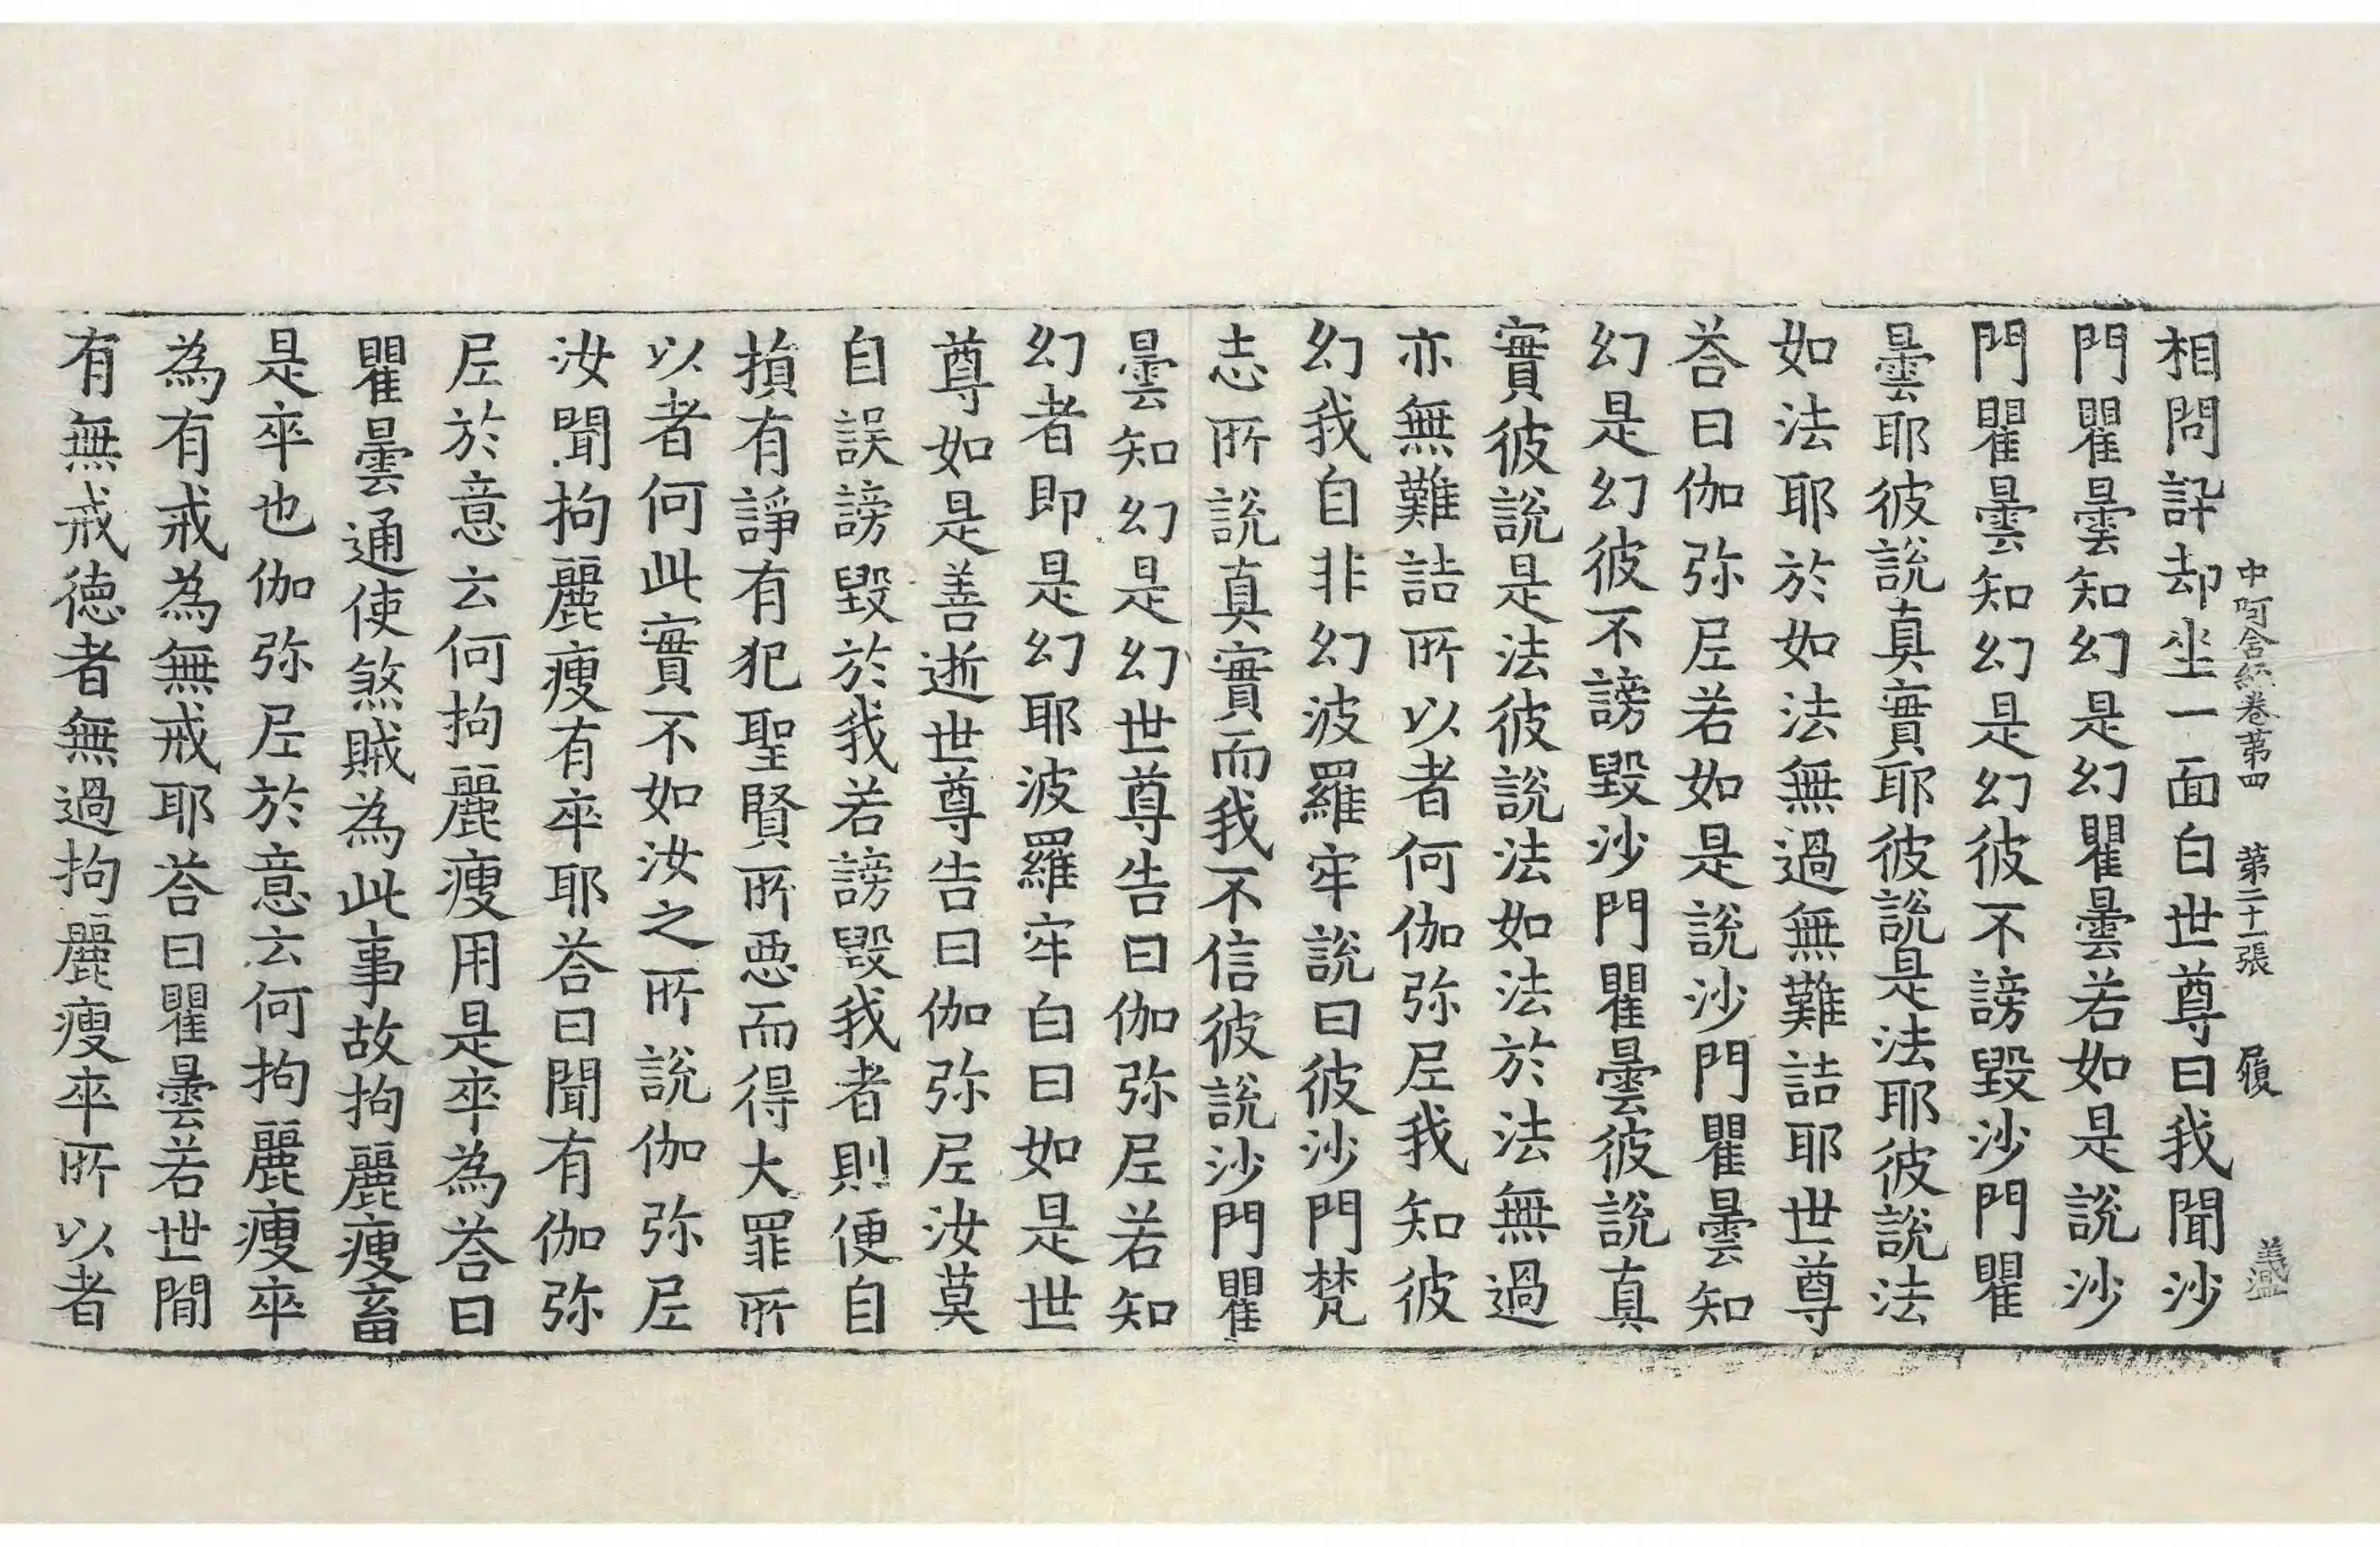 中阿含經卷苐四 苐二十一張 履
相問訊却坐一面白世尊曰我聞沙
門瞿曇知幻是幻瞿曇若如是說沙
門瞿曇知幻是幻彼不謗毀沙門瞿
曇耶彼說真實耶彼說是法耶彼說法
如法耶於如法無過無難詰耶世尊
荅曰伽弥尼若如是說沙門瞿曇知
幻是幻彼不謗毀沙門瞿曇彼說真
實彼說是法彼說法如法於法無過
亦無難詰所以者何伽弥尼我知彼
幻我自非幻波羅牢說曰彼沙門梵
志所說真實而我不信彼說沙門瞿
曇知幻是幻世尊告曰伽弥尼若知
幻者即是幻耶波羅牢白曰如是世
尊如是善逝世尊告曰伽弥尼汝莫
自誤謗毀於我若謗毀我者則便自
損有諍有犯聖賢所惡而得大罪所
以者何此實不如汝之所說伽弥尼
汝聞拘麗瘦有卒耶荅曰聞有伽弥
尼於意云何拘麗瘦用是卒為荅曰
瞿曇通使煞賊為此事故拘麗瘦畜
是卒也伽弥尼於意云何拘麗瘦卒
為有戒為無戒耶荅曰瞿曇若世間
有無戒德者無過拘麗瘦卒所以者